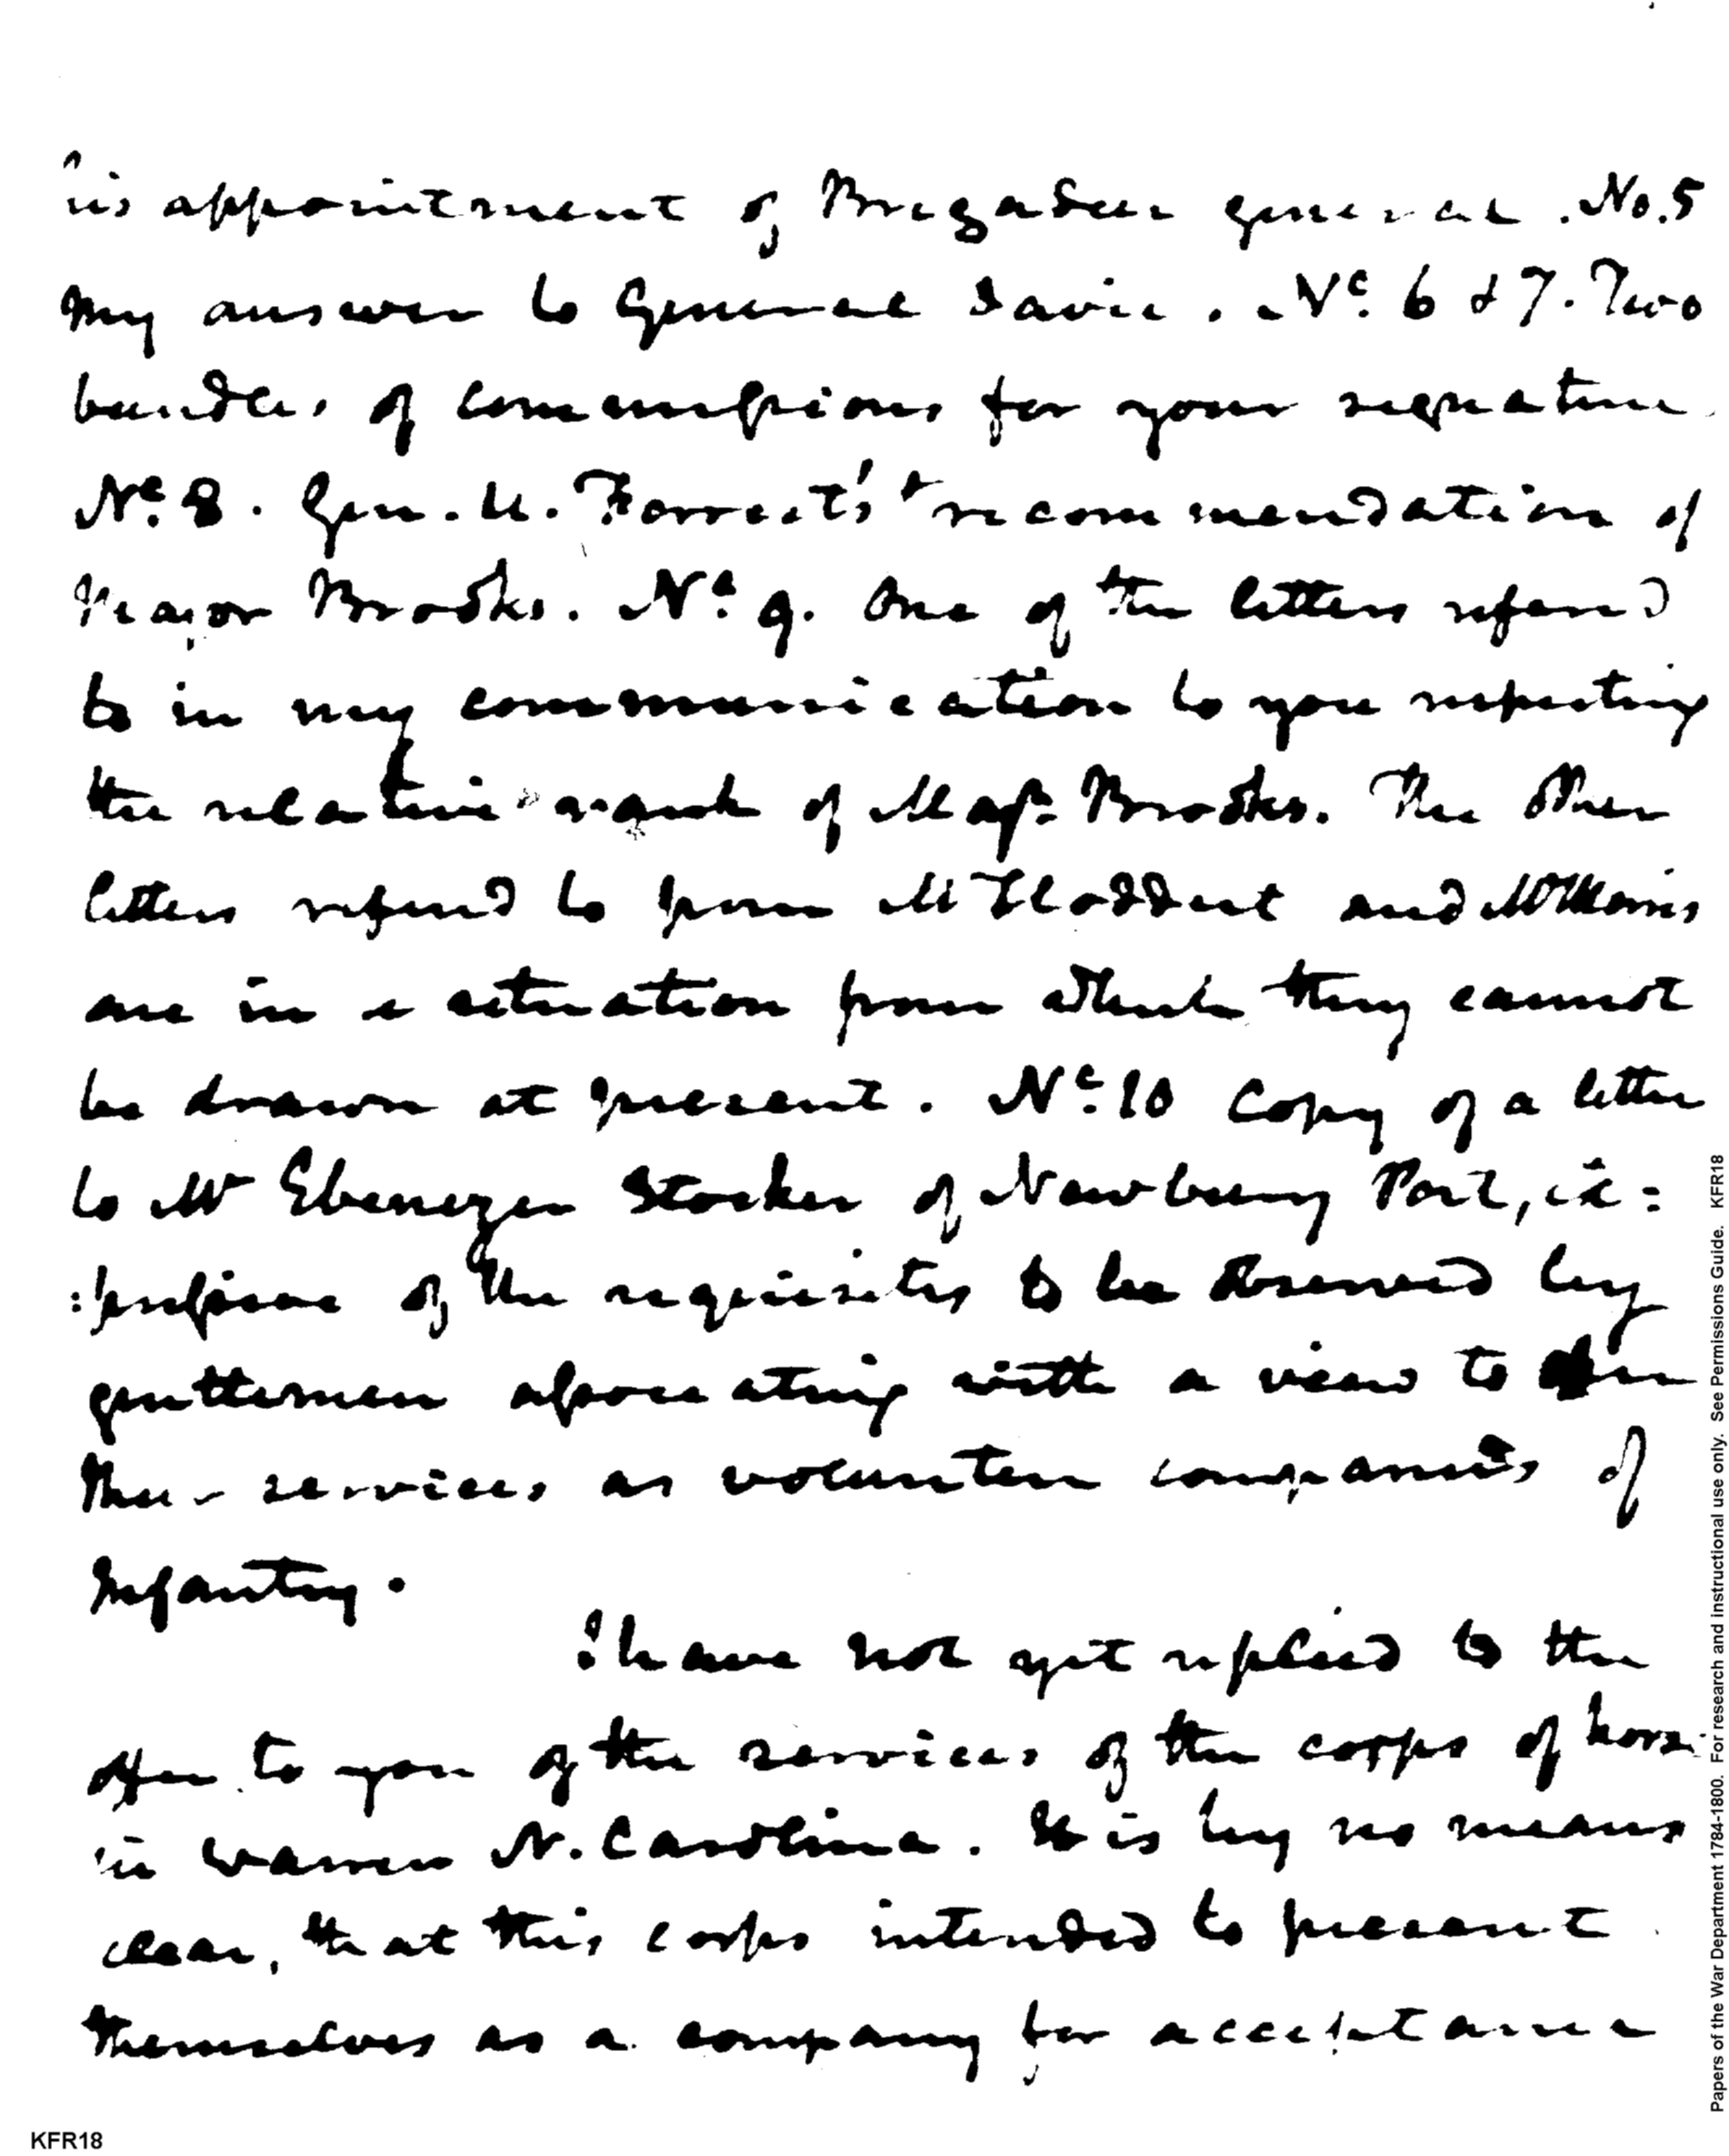 his appointment of Brigadier general. No. 5
my answer to General Davie. No. 6 & 7. Two
bundles of commissions for your signature
No. 8. Gen. U. Forrest's recommendation of
Major Brooks. No. 9. One of the letters referred
to in my communication to you respecting
the relative rank of Majr. Brooks. The other
letters referred to from Mr Stoddert and
are in a situation from which they cannot
be drawn at present. No. 10 Copy of a letter
to Mr Ebenezer Stocker of Newbury Port, ex=
:pressive of the requisites to be observed by
gentlemen associating with a view to offer
their services as volunteer companies of
Infantry.
I have not yet replied to the
offer to you of the services of the corps of horse
in Warren N. Carolina. It is by no means
clear, that this corps intended to present
themselves as a company for acceptance
KFR18
Papers of the War Department 1784-1800. For research and instructional use only. See Permissions Guide. KFR18